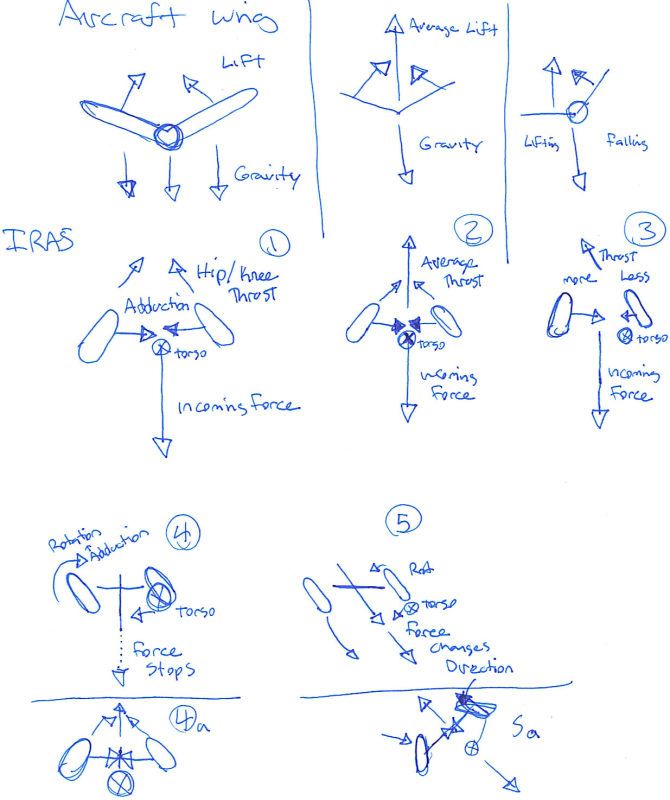 Aircraft wing
Lift
Gravity
Average Lift
Gravity
Lifting
Falling
IRAS
1
Hip/Knee
Thrust
Adduction
torso
incoming force
2
Average
Thrust
torso
incoming
Force
3
Thrust
more
Less
torso
incoming
Force
4
Rotation
Adduction
torso
Force
Stops
4a
5
Rot
torso
Force
changes
Direction
5a